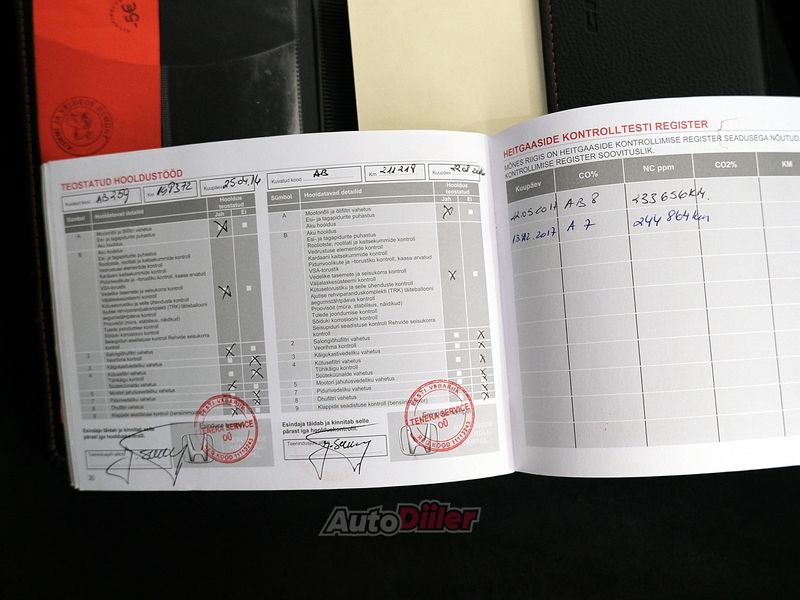 -5€
TEOSTATUD HOOLDUSTÖÖD
Kuvatud kood AB259
Km 189372
Kuupäev 25.04.14
Sümbol Hooldatavad detailid Hooldus teostatud
Jah Ei
A Mootoriõli ja õlifiltri vahetus
Esi- ja tagapidurite puhastus
Aku hooldus
B Aku hooldus
Esi- ja tagapidurite kontroll
Rooliotste, roolilati ja kaitsekummide kontroll
Vedrustuse elementide kontroll
Kardaani kaitsekummide kontroll
Pidurivoolikute ja –torustiku kontroll, kaasa arvatud
VSA-torustik
Vedelike tasemete ja seisukorra kontroll
Väljalaskesüsteemi kontroll
Kütusetorustiku ja selle ühenduste kontroll
Ajutise rehviparanduskomplekti (TRK) täiteballooni
aegumistähtpäeva kontroll
Proovisõit (müra, stabiilsus, näidikud)
Tulede joondumise kontroll
Sõiduki korrosiooni kontroll
Seisupiduri seadistuse kontroll Rehvide seisukorra
kontroll
2 Salongiõhufiltri vahetus
Veorihma kontroll
3 Käigukastivedeliku vahetus
4 Kütusefiltri vahetus
Tühikäigu kontroll
Süüteküünalde vahetus
5 Mootori jahutusvedeliku vahetus
7 Pidurivedeliku vahetus
8 Õhufiltri vahetus
9 Klappide seadistuse kontroll (bensiinimootor)
Esindaja täidab ja kinnitab selle
pärast iga hoolduskontrolli.
EESTI VABARIIK
TENERA SERVICE
OÜ
20
Kuvatud kood AB
Km 211219
Sümbol Hooldatavad detailid Hooldus teostatud
Jah Ei
A Mootoriõli ja õlifiltri vahetus
Esi- ja tagapidurite puhastus
Aku hooldus
B Aku hooldus
Esi- ja tagapidurite kontroll
Rooliotste, roolilati ja kaitsekummide kontroll
Vedrustuse elementide kontroll
Kardaani kaitsekummide kontroll
Pidurivoolikute ja –torustiku kontroll, kaasa arvatud
VSA-torustik
Vedelike tasemete ja seisukorra kontroll
Väljalaskesüsteemi kontroll
Kütusetorustiku ja selle ühenduste kontroll
Ajutise rehviparanduskomplekti (TRK) täiteballooni
aegumistähtpäeva kontroll
Proovisõit (müra, stabiilsus, näidikud)
Tulede joondumise kontroll
Sõiduki korrosiooni kontroll
Seisupiduri seadistuse kontroll Rehvide seisukorra
kontroll
2 Salongiõhufiltri vahetus
Veorihma kontroll
3 Käigukastivedeliku vahetus
4 Kütusefiltri vahetus
Tühikäigu kontroll
Süüteküünalde vahetus
5 Mootori jahutusvedeliku vahetus
7 Pidurivedeliku vahetus
8 Õhufiltri vahetus
9 Klappide seadistuse kontroll
Esindaja täidab ja kinnitab selle
pärast iga hoolduskontrolli.
EESTI VABARIIK
TENERA SERVICE
OÜ
HEITGAASIDE KONTROLLTESTI REGISTER
MÕNES RIIGIS ON HEITGAASIDE KONTROLLIMISE REGISTER SEADUSEGA NÕUTUD.
KONTROLLIMISE REGISTER SOOVITUSLIK.
Kuupäev CO% NC ppm CO2% KM
22.05.2017 AB 8 233656KM.
13.12.2017 A 7 244864km
AutoDiiler